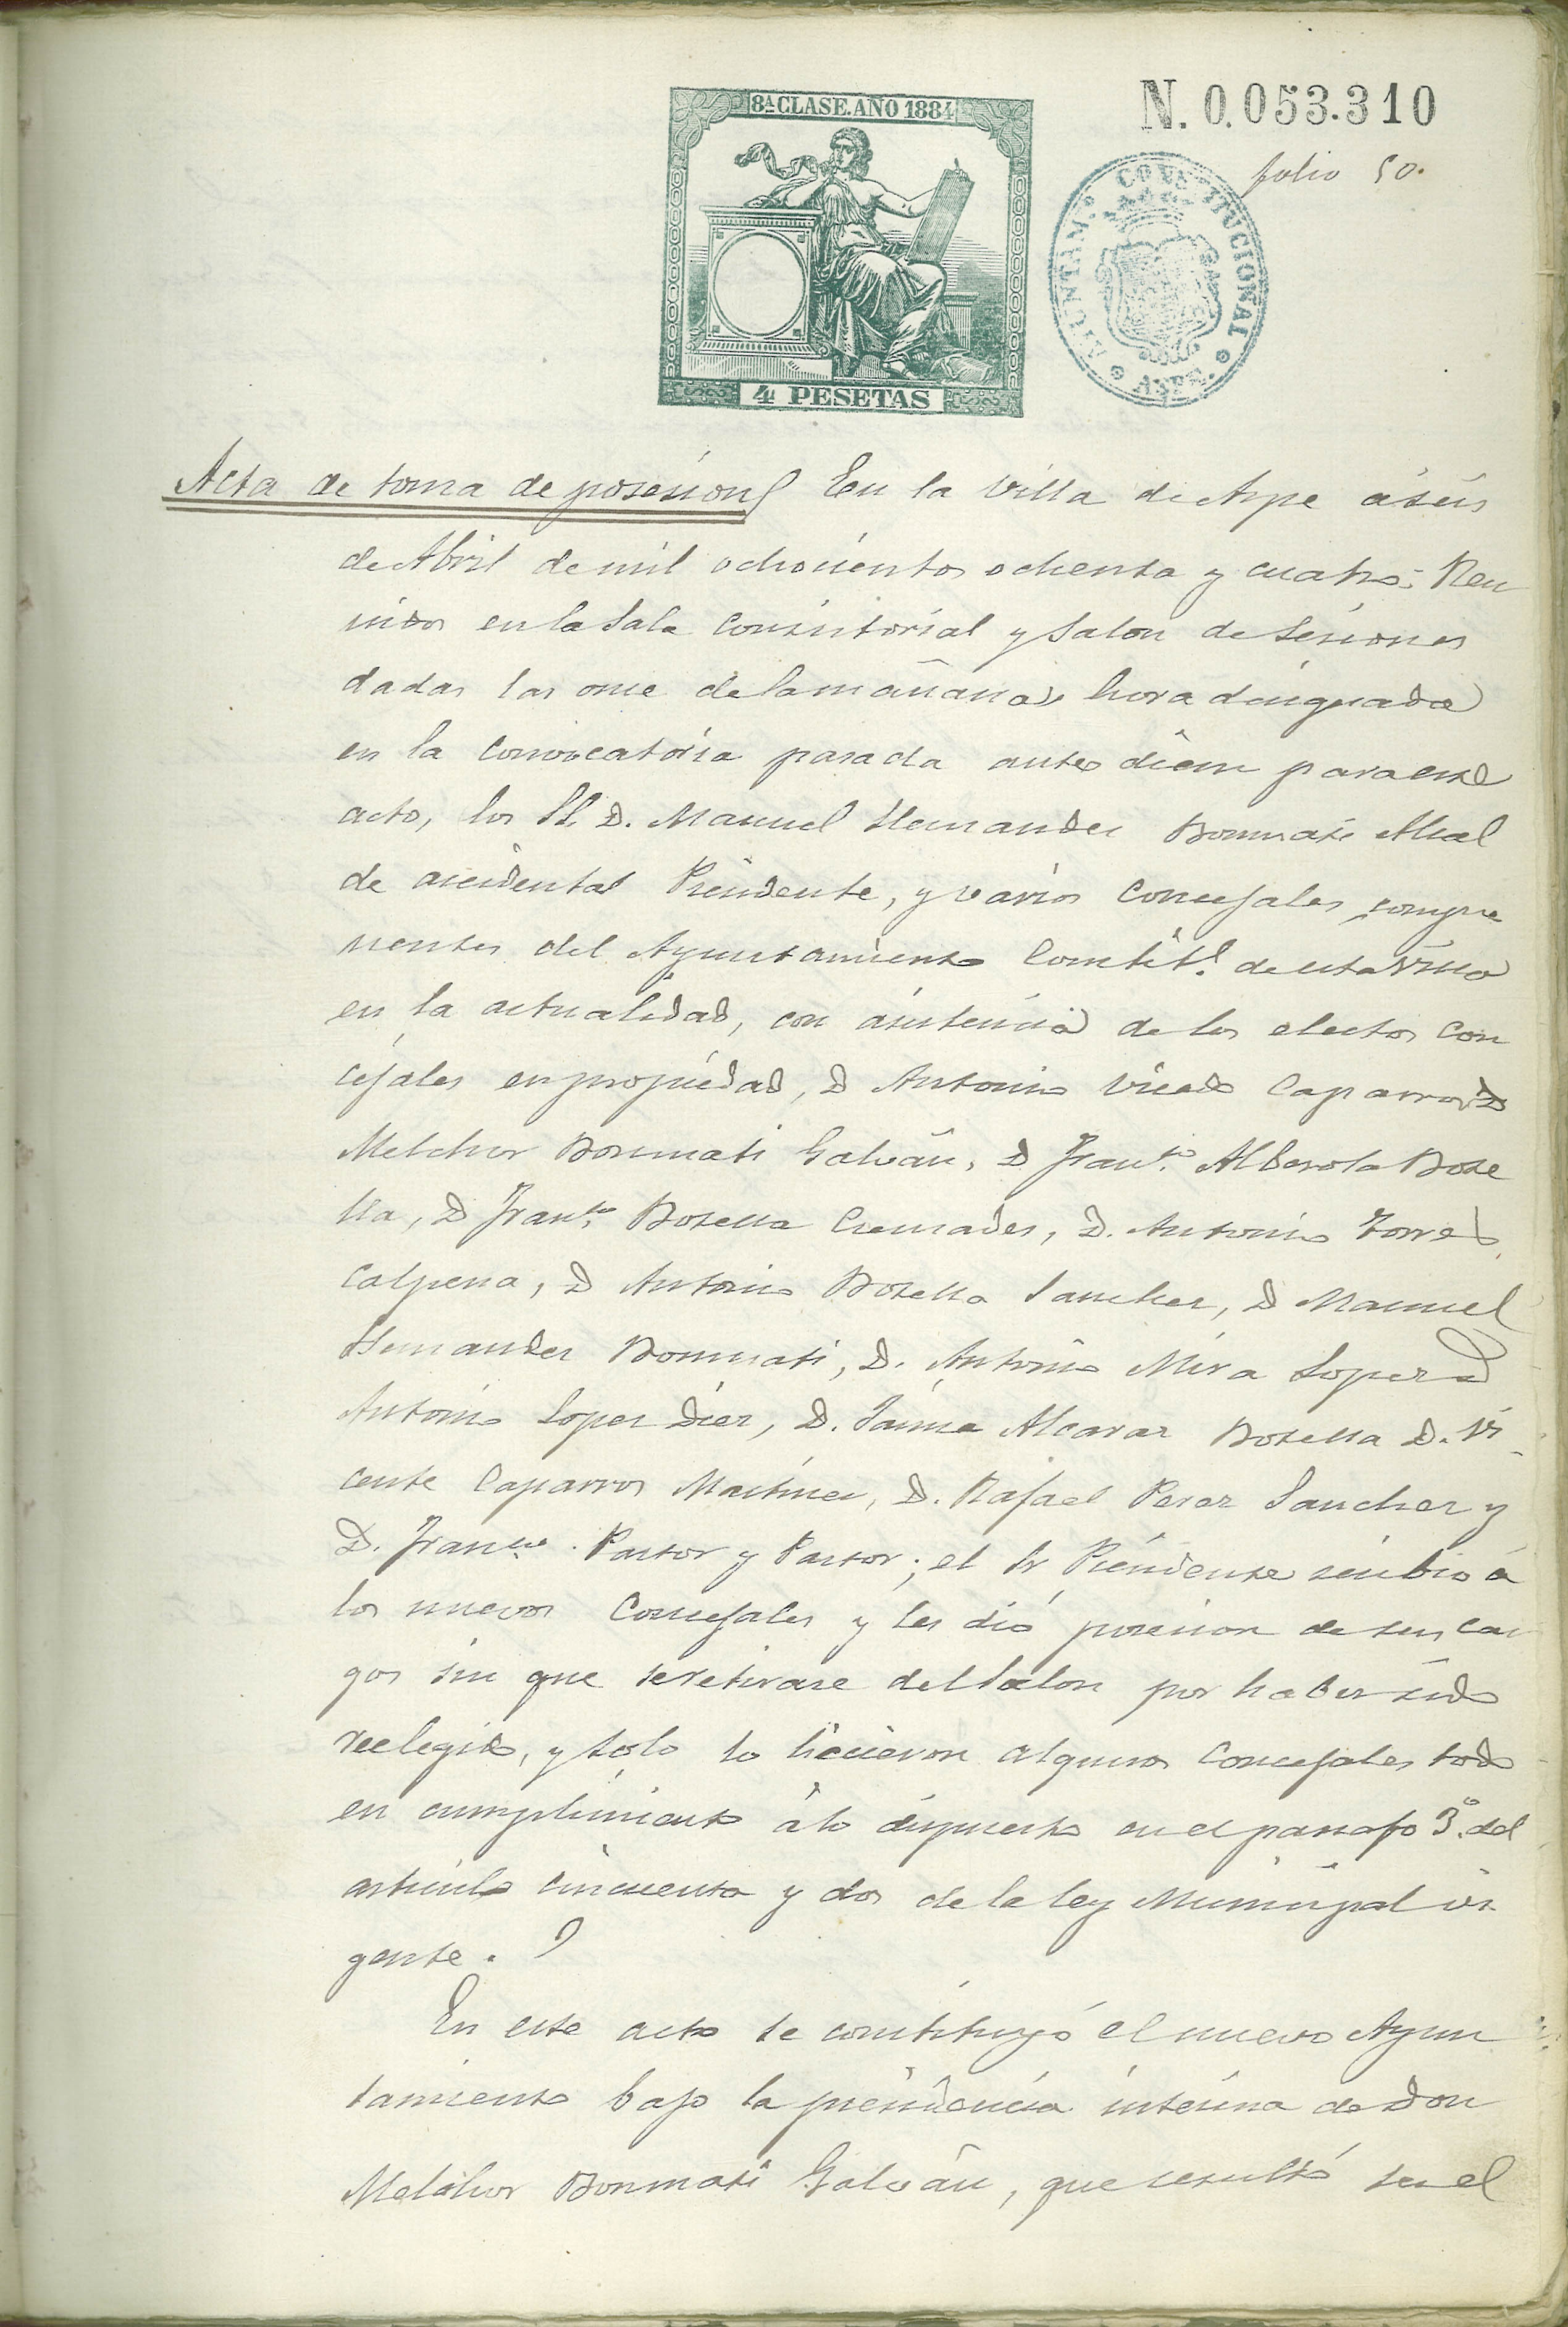 8ª CLASE. AÑO 1884
N. 0.053.310
folio 50.
AYUNTAM. CONSTITUCIONAL
ASPE.
4 PESETAS
Acta de toma de posesion En la Villa de Aspe á seis
de Abril de mil ochocientos ochenta y cuatro: Reu
nidos en la Sala Consistorial y Salon de Sesiones
dadas las once de la mañana, hora designada
en la Convocatoria pasada ante diem para este
acto, los SS. D. Manuel Hernandez Bonmati Alcal
de accidental Presidente, y varios Concejales compo
nentes del Ayuntamiento Constitl. de esta Villa
en la actualidad, con asistencia de los electos con
cejales en propiedad, D Antonio Vicedo Caparros, D
Melchor Bonmati Galván, D Franco. Alberola Bote
lla, D Franco. Botella Cremades, D. Antonio Torres
Calpena, D Antonio Botella Sanchez, D Manuel
Hernandez Bonmati, D. Antonio Mira Lopez D
Antonio Lopez Diez, D. Jaime Alcaraz Botella D. Vi
cente Caparros Martinez, D. Rafael Perez Sanchez y
D. Franco. Pastor y Pastor; el Sr Presidente recibio á
los nuevos Concejales y les dió posesion de sus car
gos sin que se retirase del Salon por haber sido
reelegido, y solo lo hicieron algunos Concejales todo
en cumplimiento á lo dispuesto en el parrafo 3º. del
articulo cincuenta y dos de la ley Municipal vi
gente.
En este acto se constituyó el nuevo Ayun
tamiento bajo la presidencia interina de Don
Melchor Bonmati Galván, que resultó ser el